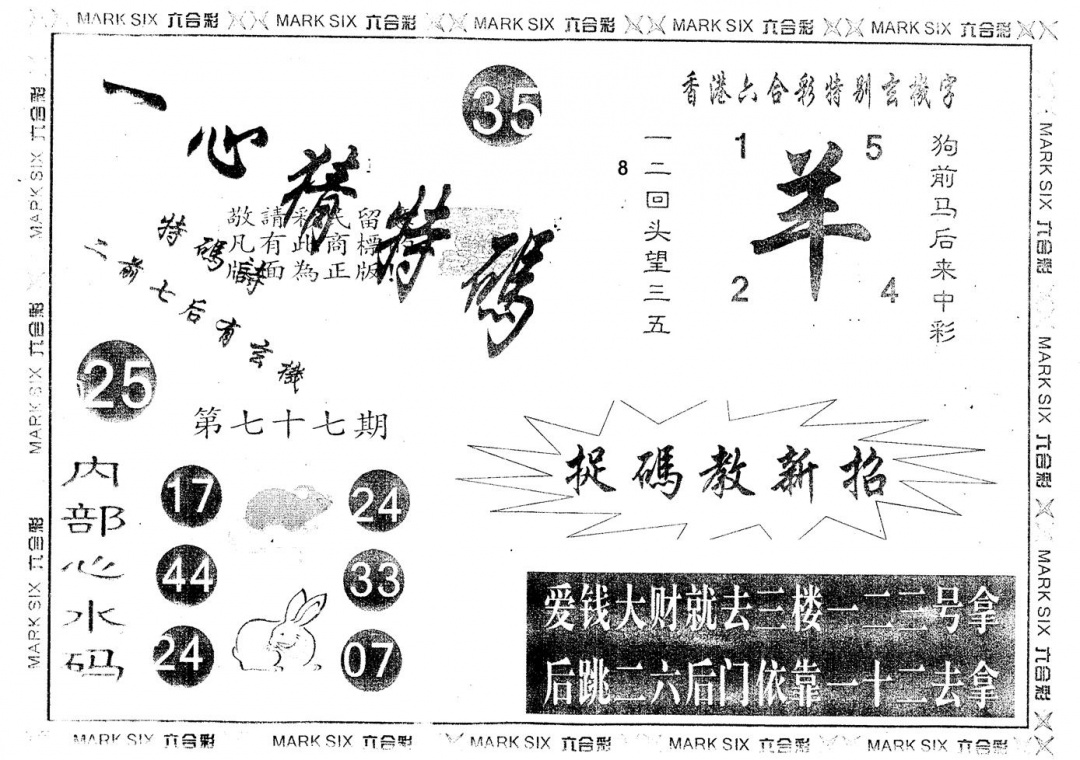 MARK SIX 六合彩 MARK SIX 六合彩 MARK SIX 六合彩 MARK SIX 六合彩 MARK SIX 六合彩
一心猜特碼
35
香港六合彩特别玄機字
8
一二回头望三五
1 5
羊
2 4
狗前马后来中彩
敬請彩民留
凡有此商標
版面為正版!
特碼詩
二前七后有玄機
25
第七十七期
捉碼教新招
内部心水码
17 24
44 33
24 07
爱钱大财就去三楼一二二号拿
后跳二六后门依靠一十二去拿
MARK SIX 六合彩
MARK SIX 六合彩
MARK SIX 六合彩
MARK SIX 六合彩
MARK SIX 六合彩
MARK SIX 六合彩
MARK SIX 六合彩 MARK SIX 六合彩 MARK SIX 六合彩 MARK SIX 六合彩 MARK SIX 六合彩